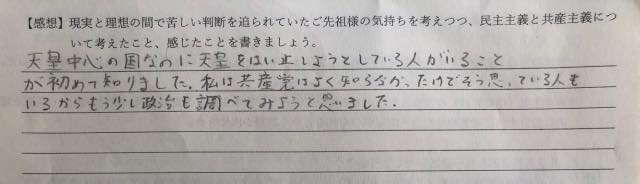 【感想】現実と理想の間で苦しい判断を迫られていたご先祖様の気持ちを考えつつ、民主主義と共産主義につ
いて考えたこと、感じたことを書きましょう。
天皇中心の国なのに天皇をはい止しようとしている人がいること
が初めて知りました。私は共産党はよく知らなかったけでそう思っている人も
いるからもう少し政治も調べてみようと思いました。